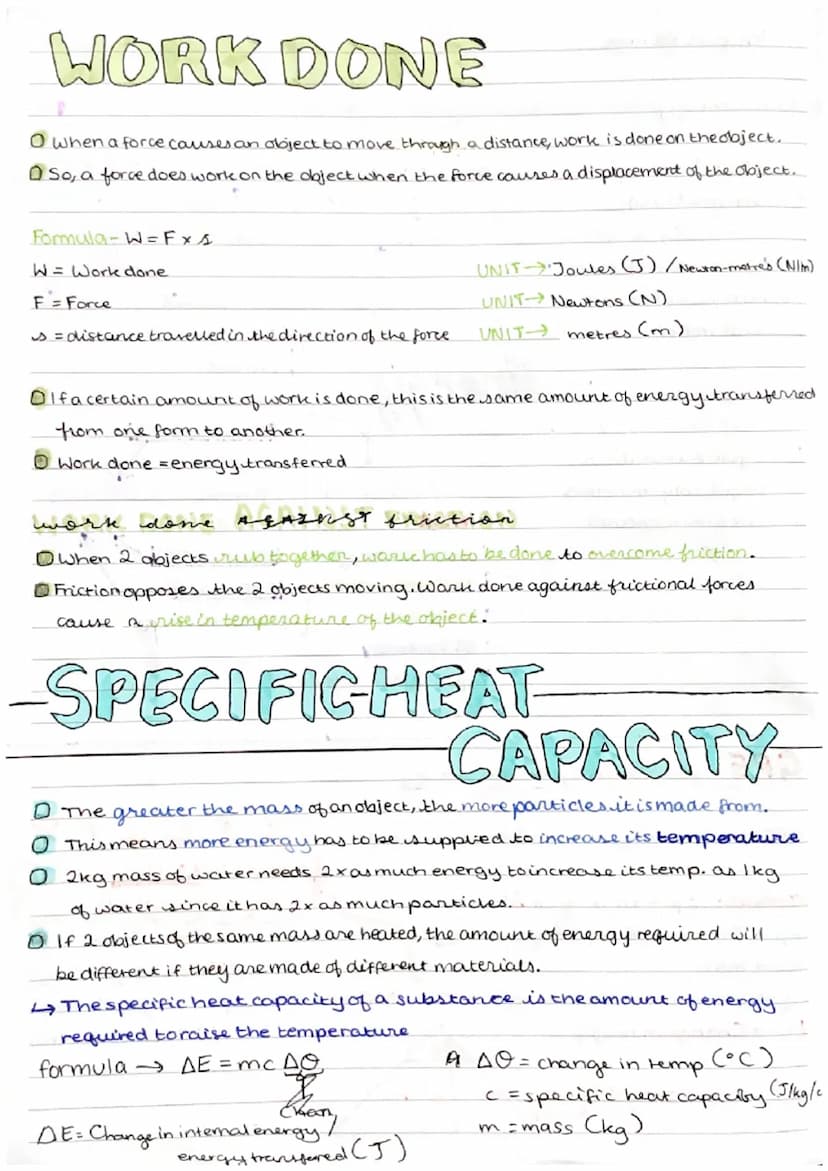 WORK DONE
When a force causes an object to move through a distance, work is done on the object.
So, a force does work on the object when the force causes a displacement of the object.
Formula - W = F x s
W = Work done UNIT → Joules (J) / Newton-metres (N/m)
F = Force UNIT → Newtons (N)
s = distance travelled in the direction of the force UNIT → metres (m)
If a certain amount of work is done, this is the same amount of energy transferred
from one form to another.
Work done = energy transferred
work done AGAINST friction
When 2 objects rub together, work has to be done to overcome friction.
Friction opposes the 2 objects moving. Work done against frictional forces
cause a rise in temperature of the object.
SPECIFIC HEAT
CAPACITY
The greater the mass of an object, the more particles it is made from.
This means more energy has to be supplied to increase its temperature
2kg mass of water needs 2x as much energy to increase its temp. as 1kg
of water since it has 2x as much particles.
If 2 objects of the same mass are heated, the amount of energy required will
be different if they are made of different materials.
↳ The specific heat capacity of a substance is the amount of energy
required to raise the temperature
formula → ΔE = mc Δθ
Δθ = change in temp (°C)
c = specific heat capacity (J/kg/c
m = mass (kg)
ΔE = Change in internal energy /
energy transferred (J)